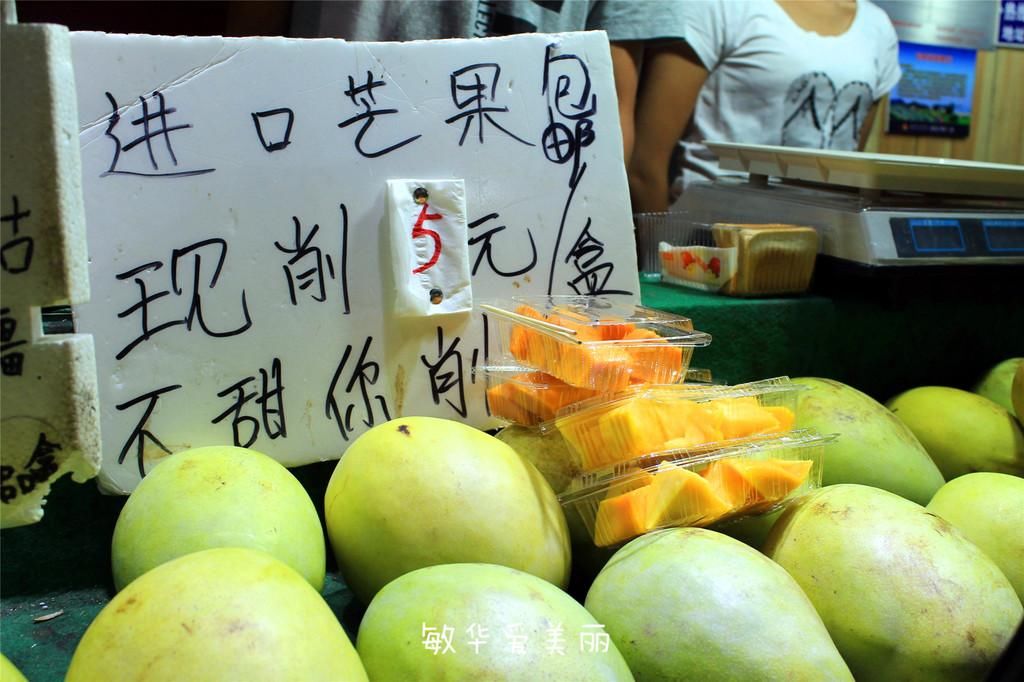 进口芒果
包邮
现削5元/盒
不甜你削
古
盒
敏华爱美丽